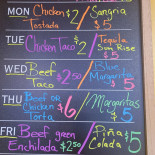 MON Chicken $2/ Sangria
Tostada $5
TUE Chicken Taco $2/ Tequila Sun Rise $5
WED Beef Taco $2.50/ Blue Margarita $5
THU Beef or Chicken Torta $6/ Margaritas $5
FRI Beef green Enchilada $2.50/ Piña Colada $5